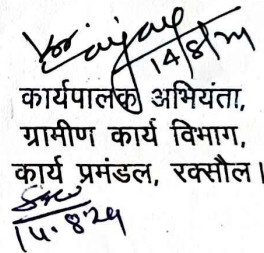 14/8/24
कार्यपालक अभियंता,
ग्रामीण कार्य विभाग,
कार्य प्रमंडल, रक्सौल।
14.8.24